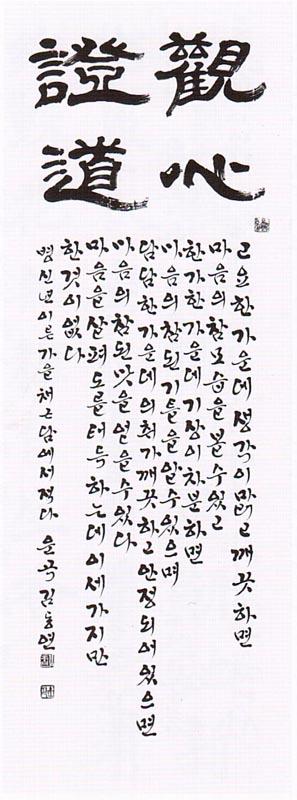 觀心
證道
고요한 가운데 생각이 맑고 깨끗하면
마음의 참모습을 볼 수 있고
한가한 가운데 기상이 차분하면
마음의 참된 기틀을 알 수 있으며
담담한 가운데 의취가 깨끗하고 안정되어 있으면
마음의 참된 맛을 얻을 수 있다
마음을 살펴 도를 터득하는데 이 세가지만
한 것이 없다
병신년 이른 가을 채근담에서 적다 운곡 김동연